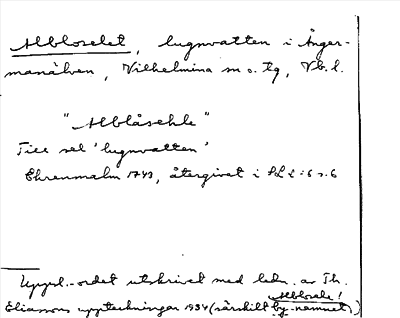 Albloselet, lugnvatten i Ånger-
manälven, Vilhelmina sn o. tg, Vb. l.
"Alblåsehle"
Till sel 'lugnvatten'
Ehrenmalm 1743, återgivet i SL 2:6 s. 6
Uppsl.-ordet utskrivet med ledn. av Th.
Eliassons uppteckningar 1934 (särskilt by-namnet Alblosele!)